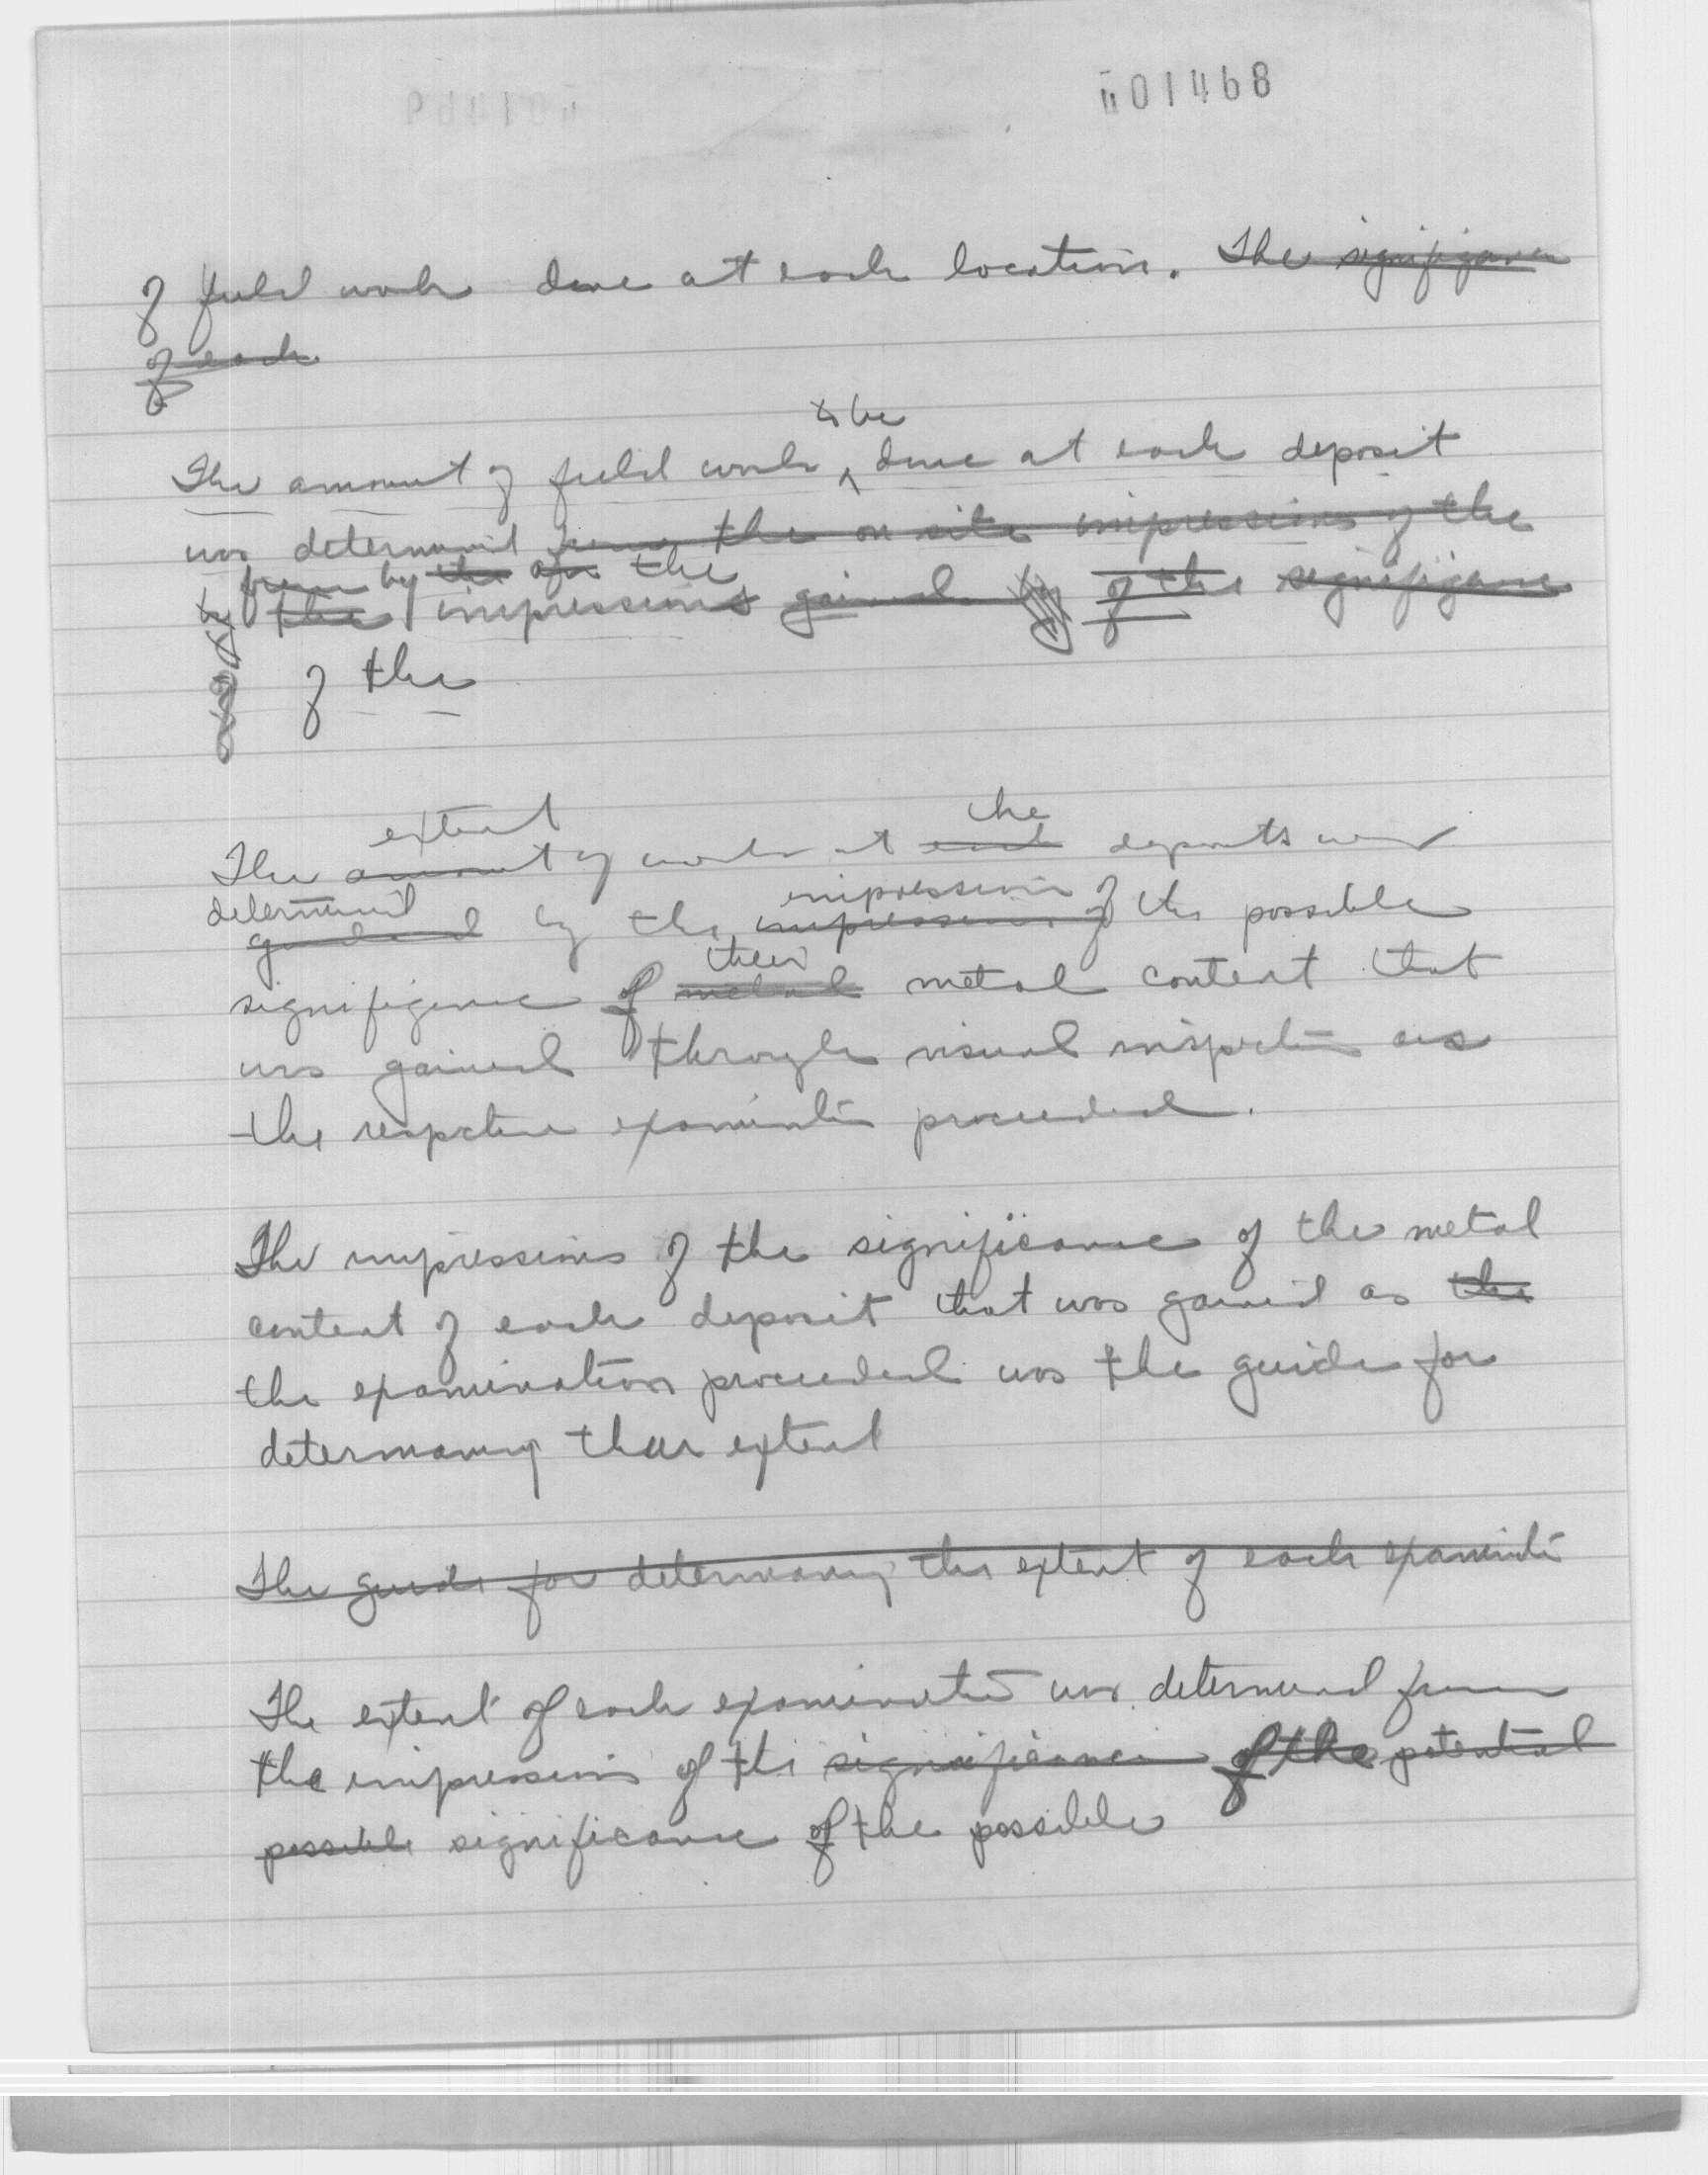 001468
of field work done at each location. The signifigance
of each
to be
The amount of field work done at each deposit
was determined from the on site impressions of the
from by the the
the impressions gained by of the signifigance
of the
extent the
The amount of work at each deposits was
determined impression
guided by the impression of the possible
their
signifigance of metal metal content that
was gained through visual inspection as
the respective examination proceeded.
The impressions of the significance of the metal
content of each deposit that was gained as the
the examination proceeded was the guide for
determining their extent
The guide for determining the extent of each examination
The extent of each examination was determined from
the impressions of the significance of the potential
possible significance of the possible